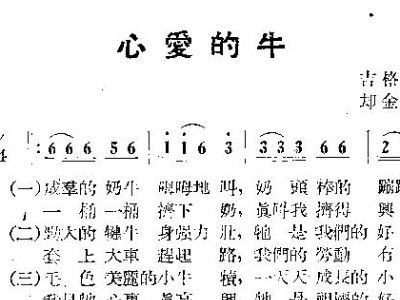 心愛的牛
吉格
却金
4 6 6 6 5 6 | i i 6 3 | 3 3 3 6 6 | 2
(一)成羣的 奶牛 哞哞地 叫, 奶 頭棒的
一 桶 一桶 擠下 奶, 眞叫我 擠得 興
(二)勁大的 犍牛 身强力 壯, 牠 是 我們的 好
套 上 大車 趕起 路, 我們的 勞動 有
(三)毛 色 美麗的 小牛 犢, 一天天 成長的 小